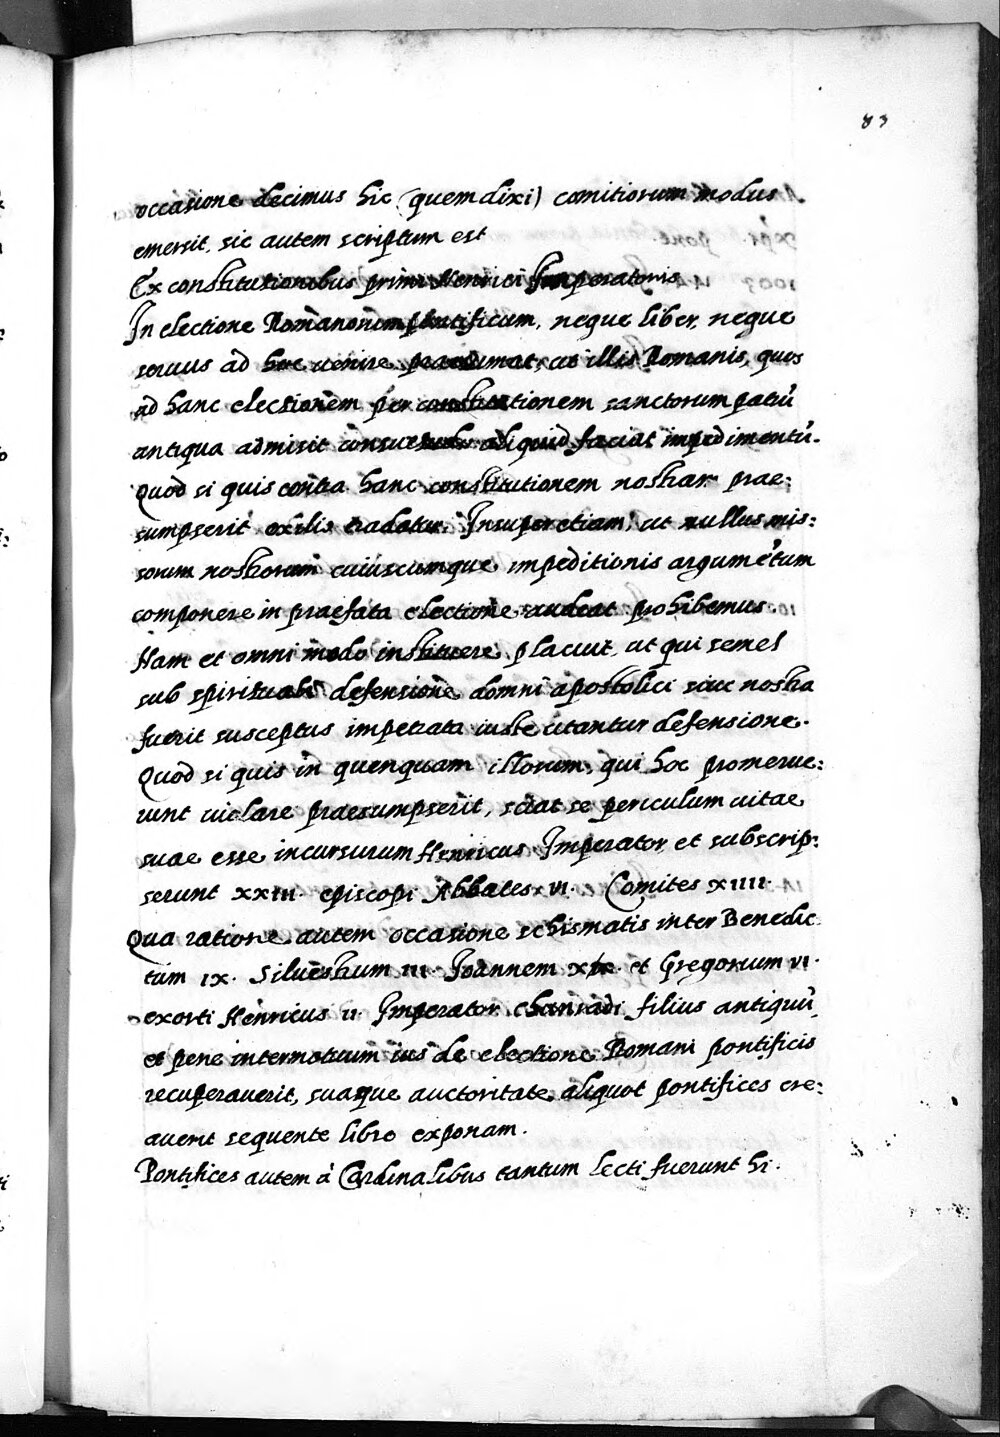 83
occasione decimus hic (quem dixi) comitiorum modus
emersit, sic autem scriptum est
Ex constitutionibus primi Henrici Imperatoris
In electione Romanorum pontificum, neque liber, neque
servus ad hoc venire praesumat, ut illis Romanis, quos
ad hanc electionem per constitutionem sanctorum patrū
antiqua admisit consuetudo aliquid faciat impedimentū.
Quod si quis contra hanc constitutionem nostram prae:
sumpserit exilio tradatur. Insuper etiam, ut nullus mis:
sorum nostrorum cuiuscumque impeditionis argumētum
componere in praefata electione audeat prohibemus.
Nam et omni modo instituere placuit, ut qui semel
sub spirituali defensione domni apostolici sive nostra
fuerit susceptus impetrata iuste utantur defensione.
Quod si quis in quenquam illorum, qui hoc promerue:
runt violare praesumpserit, sciat se periculum vitae
suae esse incursurum Henricus Imperator et subscrip:
serunt XXIII. episcopi Abbates VI. Comites XIIII.
Qua ratione autem occasione schismatis inter Benedic
tum IX. Silvestrum III. Ioannem et Gregorium VI.
exorti Henricus II Imperator filius antiquū
et pene intermotuum ius de electione Romani pontificis
recuperaverit, suaque auctoritate aliquot pontifices cre:
averit sequente libro exponam.
Pontifices autem à Cardinalibus tantum lecti fuerunt hi.